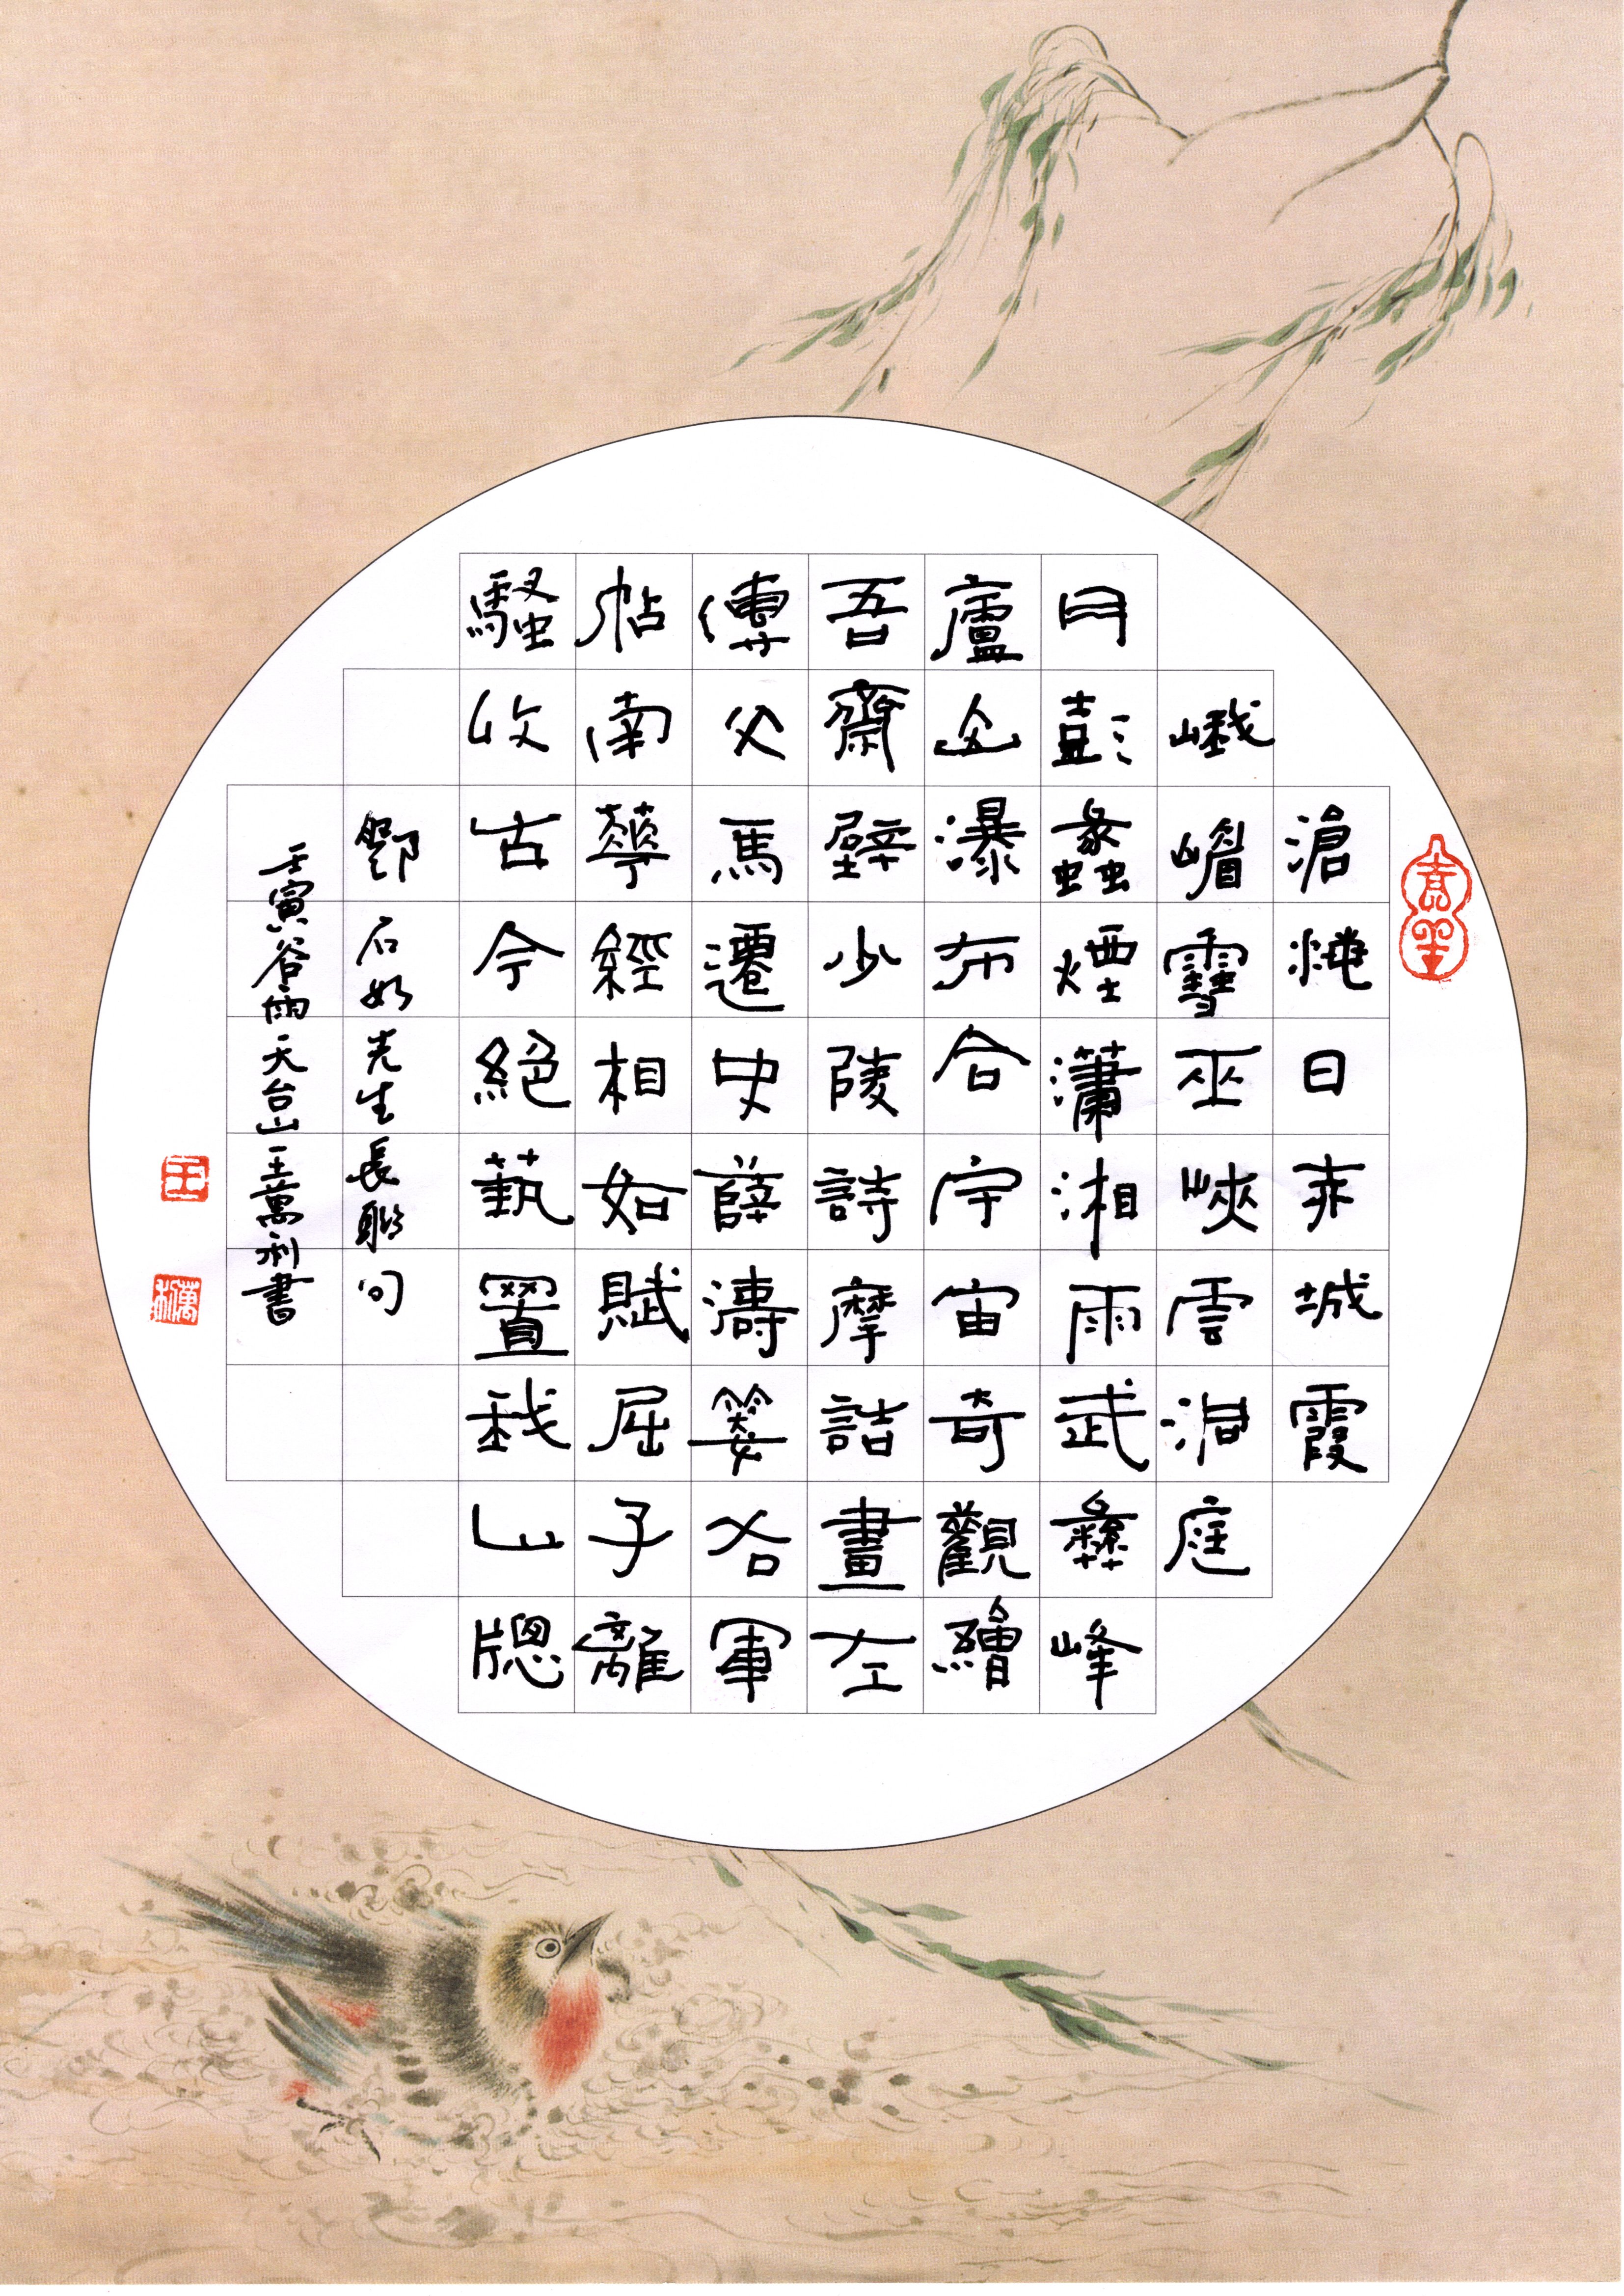 滄海日赤城霞
峨嵋雪巫峽雲洞庭
月彭蠡煙瀟湘雨武彝峰
廬山瀑布合宇宙奇觀繪
吾齋壁少陵詩摩詰畫左
傳文馬遷史薛濤箋右軍
帖南華經相如賦屈子離
騷收古今絕藝置我山牕
鄧石如先生長聯句
壬寅谷雨天台山王萬利書
王
萬利